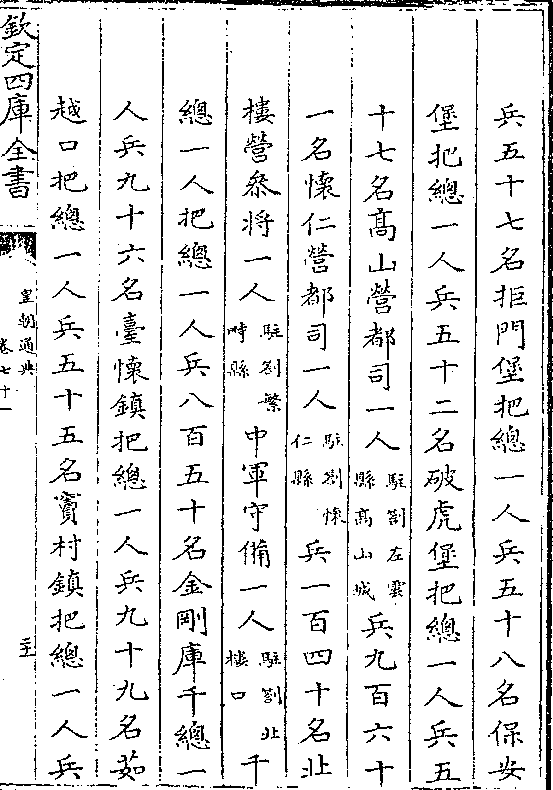 兵五十七名拒門堡把總一人兵五十八名保安
堡把總一人兵五十二名破虎堡把總一人兵五
十七名高山營都司一人駐劄左雲縣高山城兵九百六十
一名懷仁營都司一人駐劄懷仁縣兵一百四十名北
樓營參將一人駐劄繁畤縣中軍守備一人駐劄北樓口千
總一人把總一人兵八百五十名金剛庫千總一
人兵九十六名臺懷鎮把總一人兵九十九名茹
越口把總一人兵五十五名竇村鎮把總一人兵
欽定四庫全書
皇朝通典
卷七十一